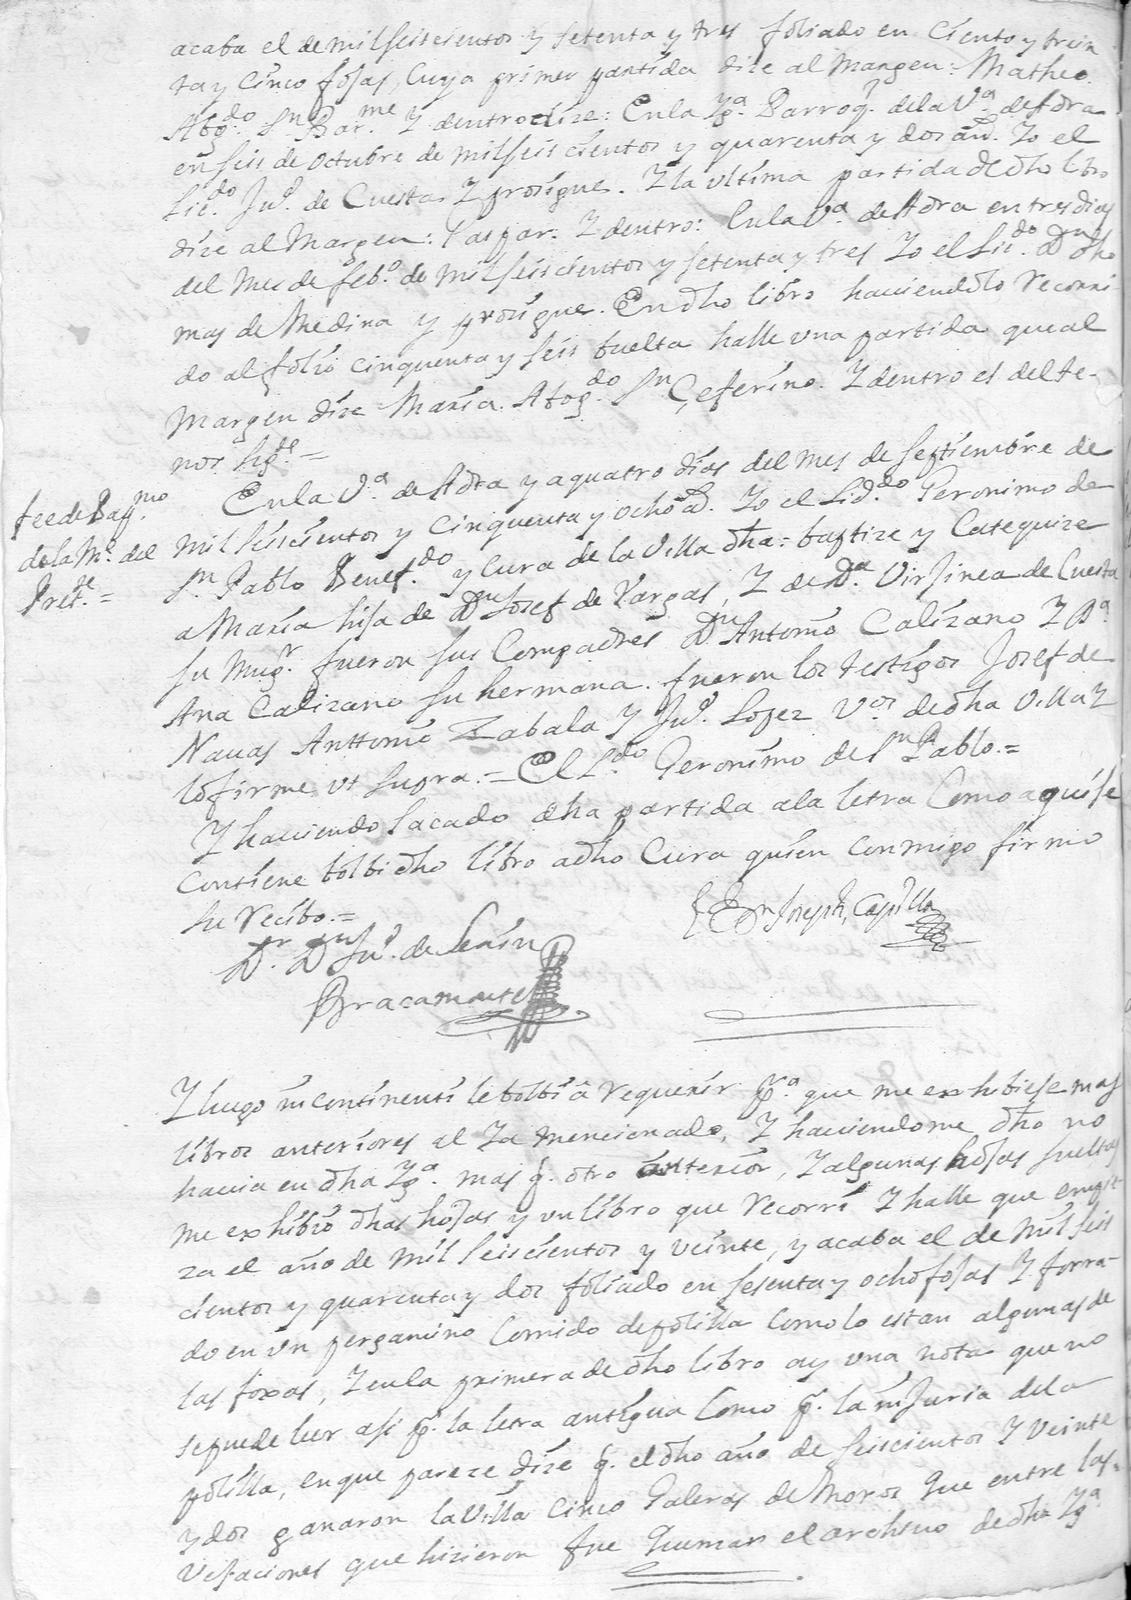 acaba el de mil seiscientos y setenta y tres foliado en Ciento y trein
ta y cinco fojas, cuya primer partida dize al Margen: Matheo.
Abog.do S.n Bar.me Y dentro dize: En la Yg.a Parroq.l de la V.a de Adra
en seis de octubre de mil seis cientos y quarenta y dos añ.s Yo el
Lic.do Ju.o de Cuesta. Y prosigue. Y la ultima partida de dho libro
dize al Margen: Gaspar. Y dentro: En la V.a de Adra en tres dias
del Mes de feb.o de mil seiscientos y setenta y tres Yo el Lic.do D.n tho
mas de Medina y prosigue. En dho libro haviendolo recorri
do al folio cinquenta y seis buelta halle una partida que al
Margen dize Maria. Abog.do S.n Ceferino. Y dentro es del te-
nor sig.te =
fee de Bap.mo
de la M.e del
Pret.te =
En la V.a de Adra y a quatro dias del mes de septiembre de
mil seiscientos y cinquenta y ocho a.s Yo el Lid.do Geronimo de
S.n Pablo Benef.do y Cura de la Villa dha = baptize y Catequize
a Maria hija de D.n Josef de Vargas, Y de D.a Virjinea de Cuesta
su Mug.r fueron sus Compadres D.n Antonio Calizano Y D.a
Ana Calizano su hermana. fueron los testigos Josef de
Navas Anttonio Zabala Y Ju.o Lopez V.os de dha Villa Y
lo firme ut supra. = El L.do Geronimo de S.n Pablo. =
Y haviendo sacado dha partida a la letra Como aqui se
contiene bolbi dho libro a dho Cura quien conmigo firmo
su recibo. =
D.r D.n Ju.o de Lerin
Bracamonte
D.n Joseph Capilla
Y luego incontinenti le bolbi â requerir p.a que me exhibiese mas
libros anteriores al Ya mencionado, Y haviendome dho no
havia en dha Yg.a mas q. otro anterior, Y algunas hojas sueltas
me exhibio dhas hojas y un libro que recorri Y halle que empie
za el año de mil seiscientos y veinte, y acaba el de mil seis
cientos y quarenta y dos foliado en sesenta y ocho fojas Y forra-
do en un pergamino Comido de polilla como lo estan algunas de
las foxas, Y en la primera de dho libro ay una nota que no
se puede leer asi p.r la letra antigua Como p.r la injuria de la
polilla, en que pareze dize q. el dho año de seiscientos Y veinte
y dos ganaron la Villa Cinco Galeras de Moros Que entre las
vejaciones que hizieron fue Quemar el archivo de dha Yg.a